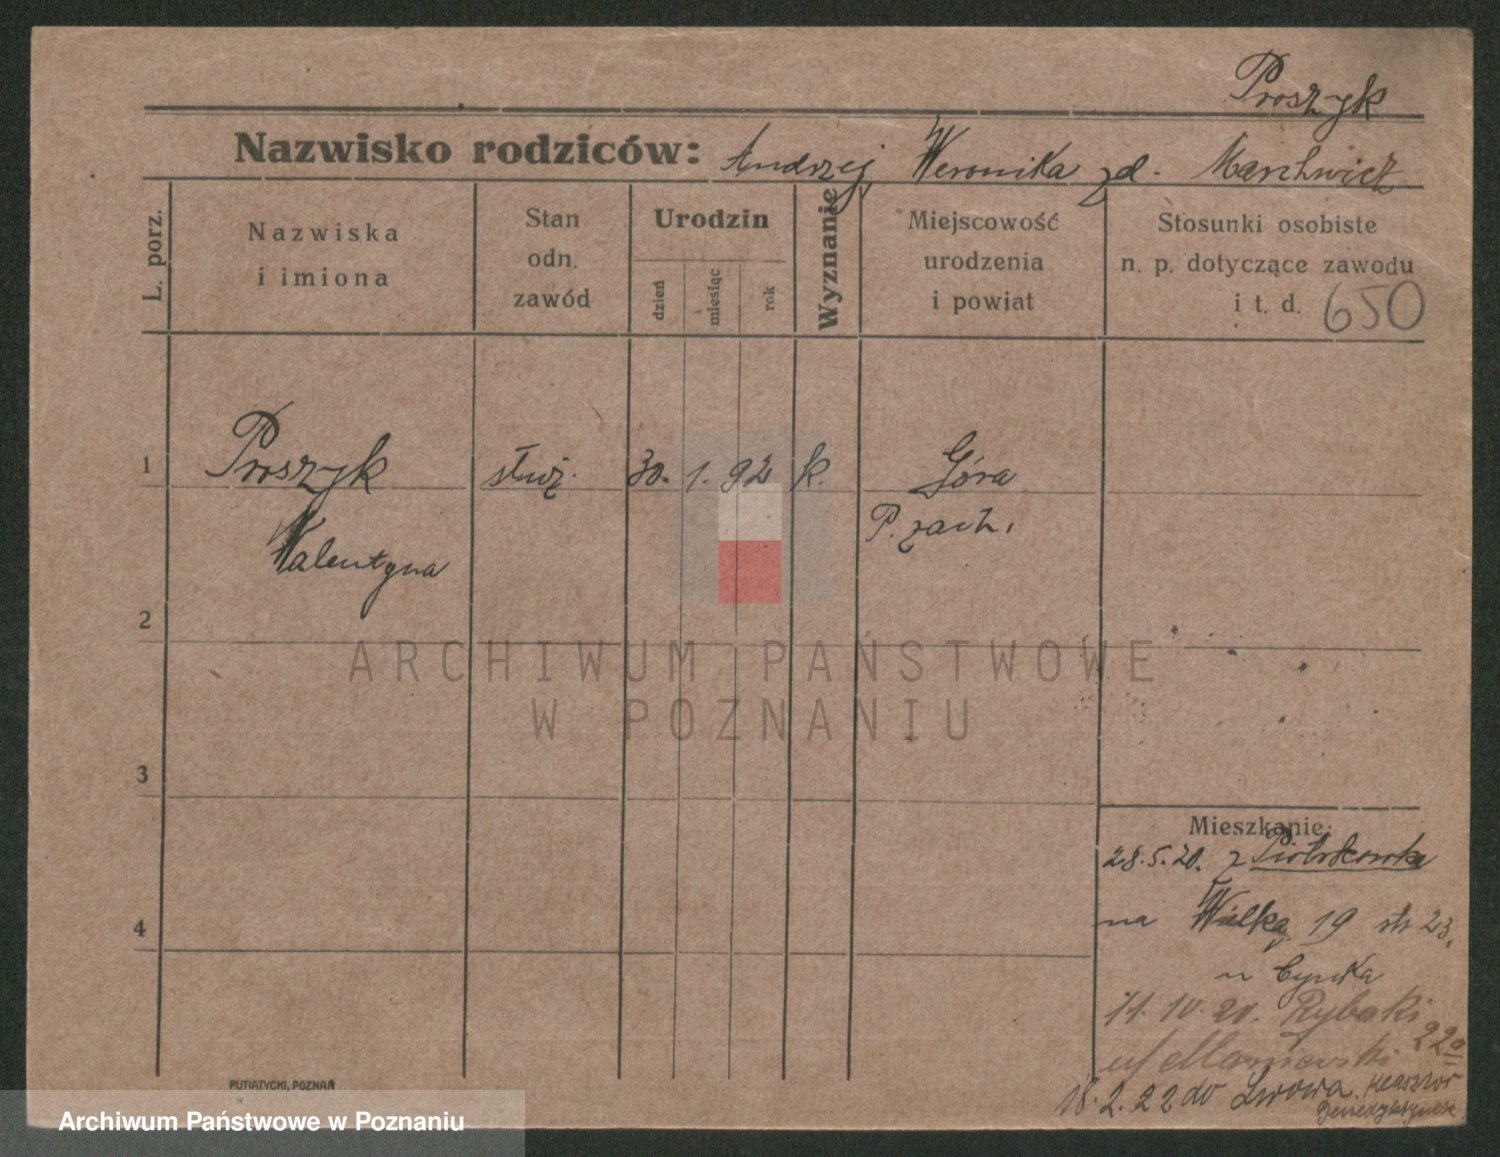 Proszyk
Nazwisko rodziców: Andrzej, Weronika zd. Marchwicz
L. porz.
Nazwiska
i imiona
Stan
odn.
zawód
Urodzin
dzień
miesiąc
rok
Wyznanie
Miejscowość
urodzenia
i powiat
Stosunki osobiste
n. p. dotyczące zawodu
i t. d. 650
1 Proszyk służ. 30. 1. 92 k. Góra
Walentyna P. zach.
2
ARCHIWUM PAŃSTWOWE
W POZNANIU
3
Mieszkanie:
28.5.20. z Piotrkowska
na Wielką 19 str 23.
u Cynka
4
11.10.20. Rybaki 22a
u/
18.2.22 do Lwowa. Klasztor
Benedyktynek
PUTIATYCKI, POZNAŃ
Archiwum Państwowe w Poznaniu